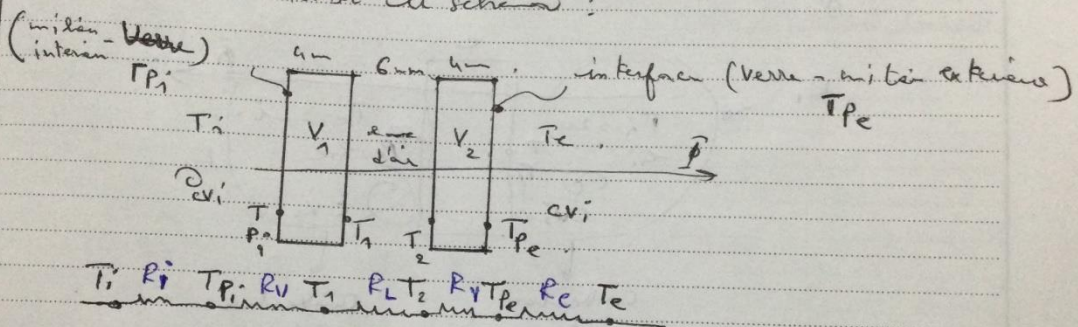 schéma :
(milieu - Verre)
intérieur
TPi
4mm 6mm 4mm
interface (verre - milieu extérieur)
TPe
Ti V1 lame d'air V2 Te Φ
cvi cvi
TPi T1 T2 TPe
Ti Ri TPi RV T1 RL T2 RV TPe Re Te